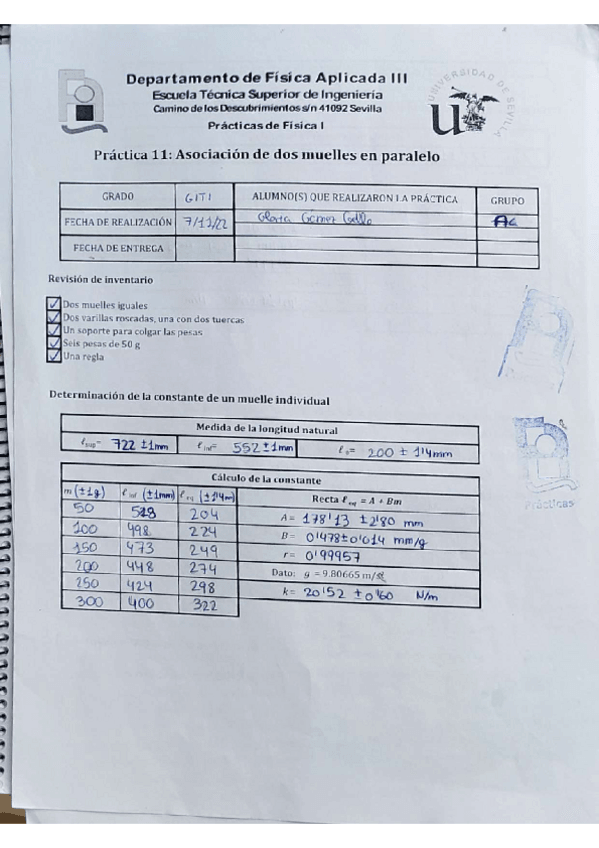 Departamento de Física Aplicada III
Escuela Técnica Superior de Ingeniería
Camino de los Descubrimientos s/n 41092 Sevilla
Prácticas de Física I
UNIVERSIDAD DE SEVILLA
Práctica 11: Asociación de dos muelles en paralelo
GRADO GITI ALUMNO(S) QUE REALIZARON LA PRÁCTICA GRUPO
FECHA DE REALIZACIÓN 7/11/22 Gloria Gómez
FECHA DE ENTREGA
Revisión de inventario
Dos muelles iguales
Dos varillas roscadas, una con dos tuercas
Un soporte para colgar las pesas
Seis pesas de 50 g
Una regla
Determinación de la constante de un muelle individual
Medida de la longitud natural
ℓsup= 722 ±1mm ℓinf= 552 ±1mm ℓ0= 200 ± 1'4mm
Cálculo de la constante
m (±1g) ℓinf (±1mm) ℓeq (±1'4m) Recta ℓeq = A + Bm
50 204 A = 178'13 ±2'80 mm
100 498 224 B = 0'478±0'014 mm/g
150 473 249 r = 0'99957
200 448 274 Dato: g = 9.80665 m/s²
250 424 298 k= 20'52 ±0'60 N/m
300 400 322
Prácticas